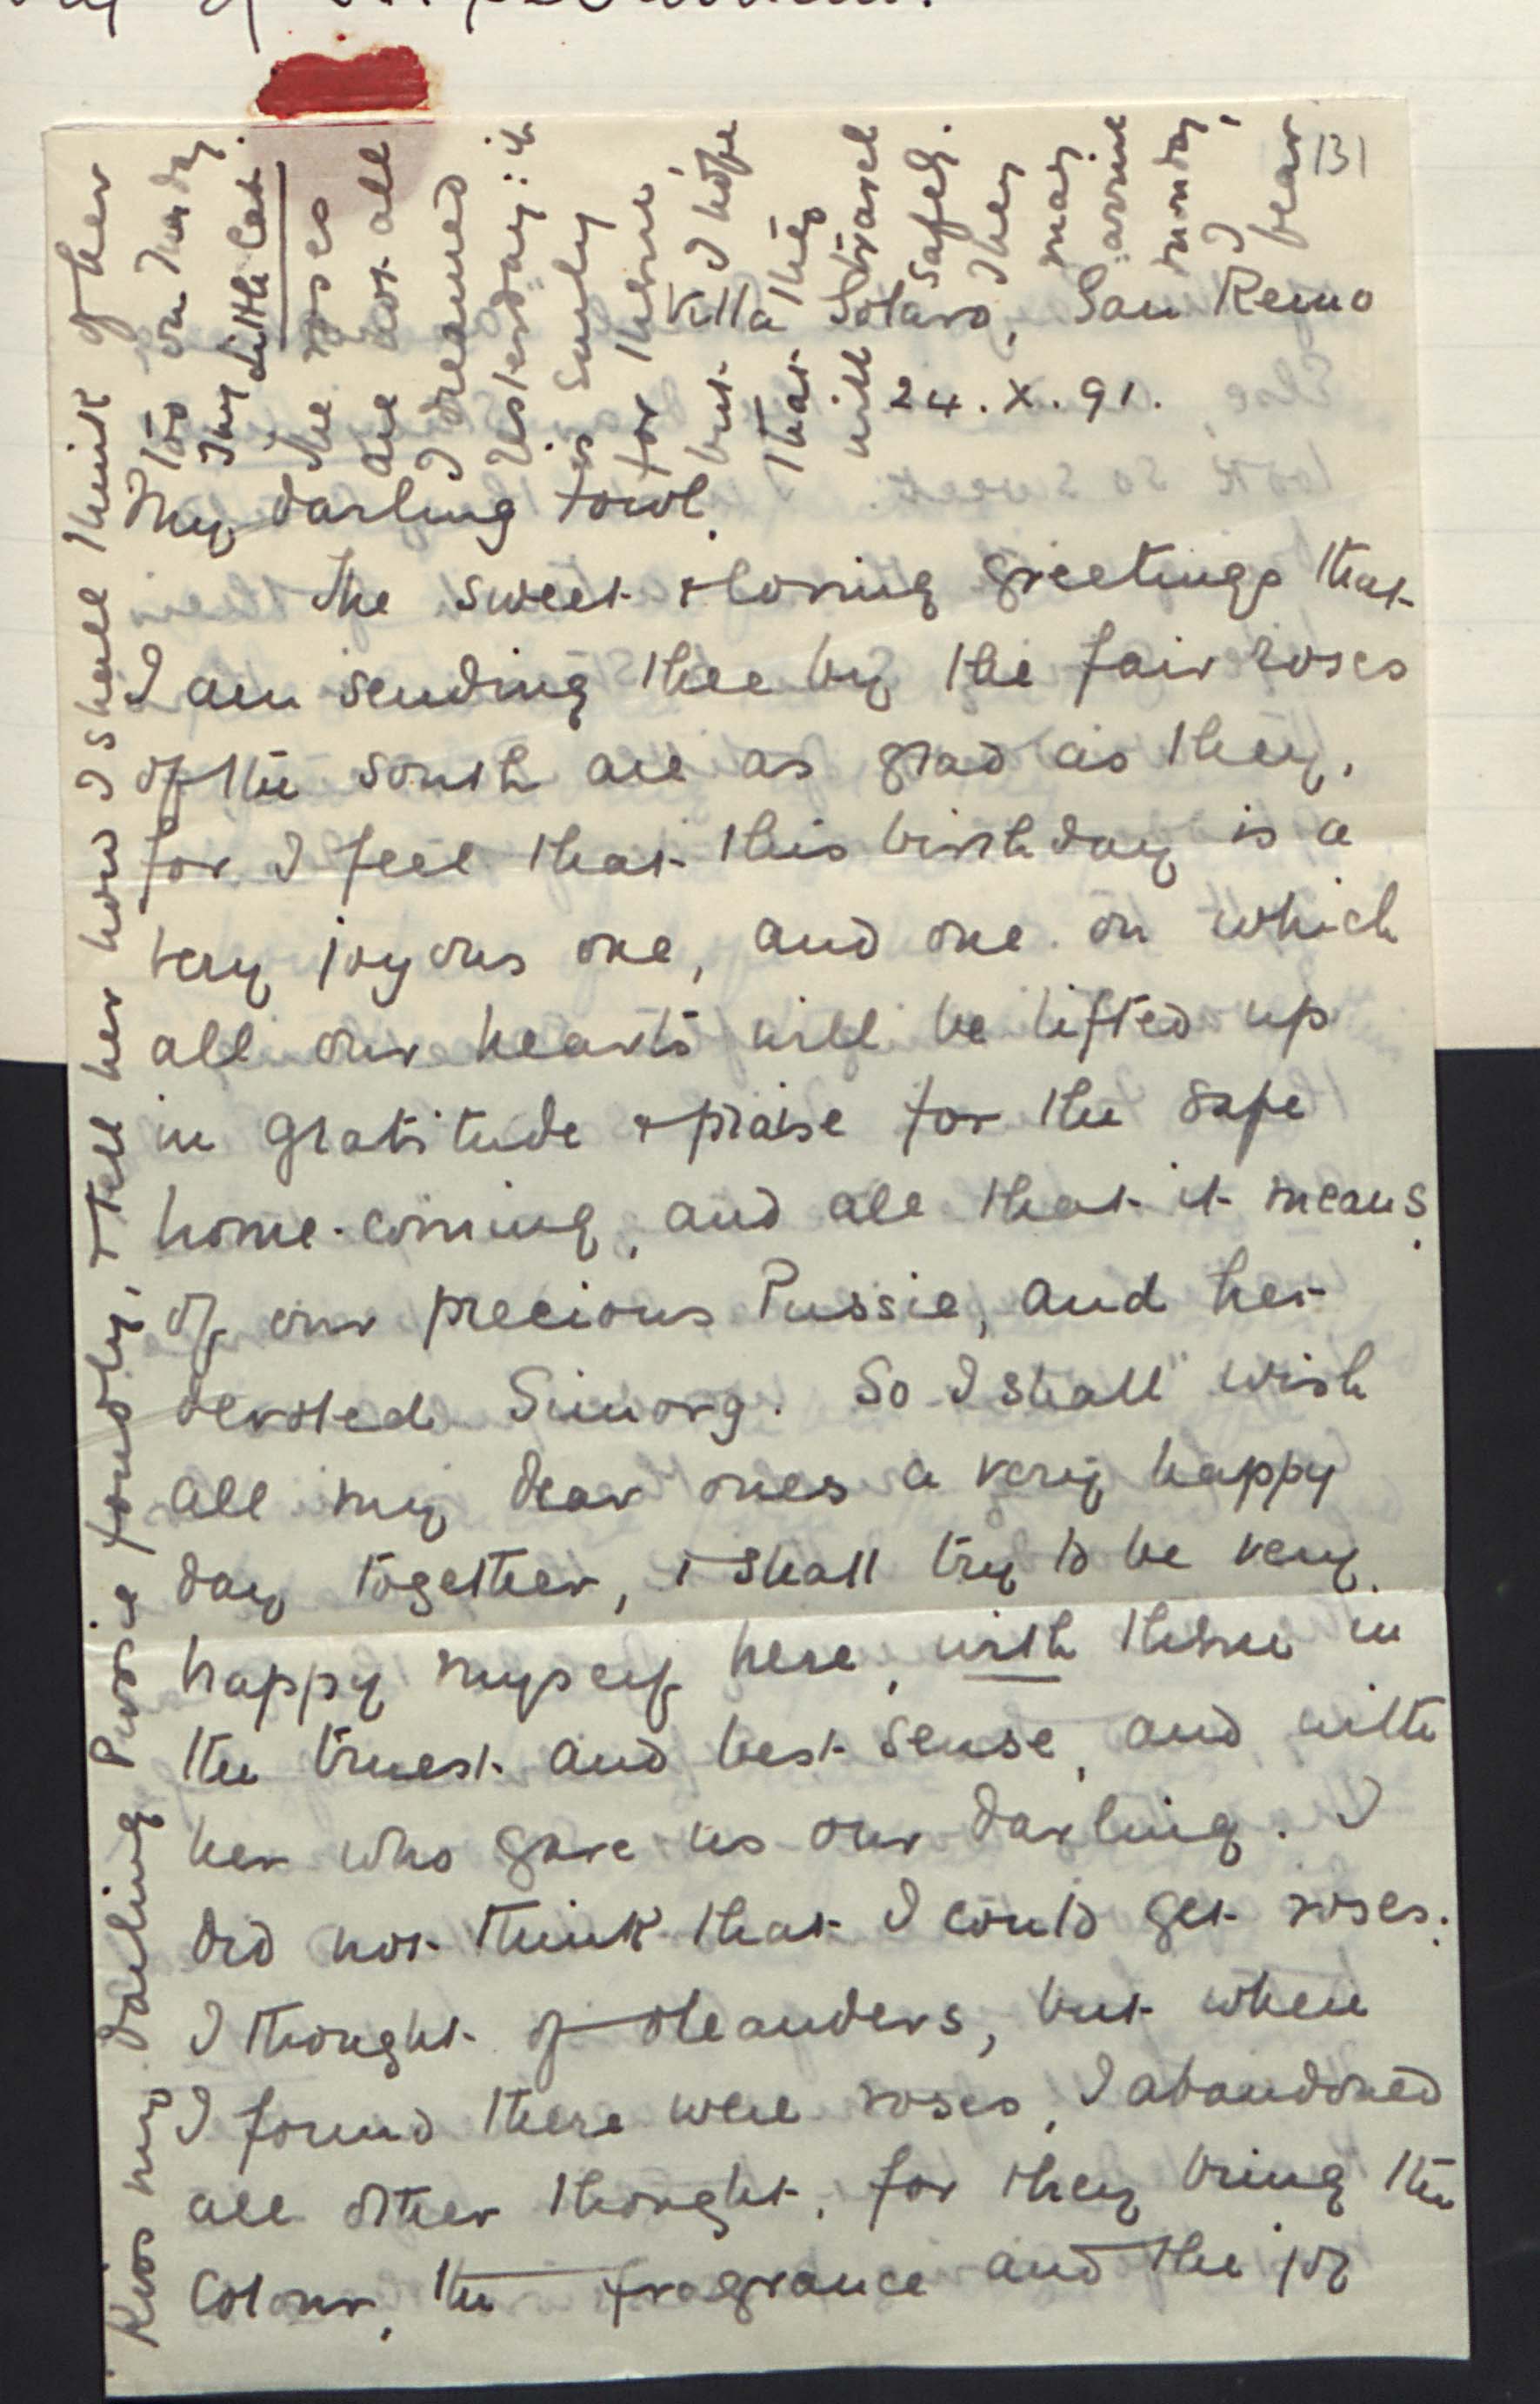 131
Villa Solaro, San Remo
24.X.91.
My darling Fowl,
The sweet & loving greetings that
I am sending thee by the fair roses
of the south are as glad as they,
for I feel that this birthday is a
very joyous one, and one on which
all our hearts will be lifted up
in gratitude & praise for the safe
home-coming, and all that it means,
of our precious Pussie, and her
devoted Simorg. So I shall wish
all my dear ones a very happy
day together, & shall try to be very
happy myself here, with thine in
the truest and best sense, and with
her who gave us our darling. I
did not think that I could get roses:
I thought of oleanders, but when
I found there were roses, I abandoned
all other thought, for they bring the
colour, the fragrance and the joy
Kiss my darling Pussie fondly, & tell her how I shall think of her
too on thy day.
Thy Little Cat
The roses
are not all
I dreamed
yesterday: it
is early
for them,
but I hope
that they
will travel
safely.
They
may
arrive
Monday,
I
fear